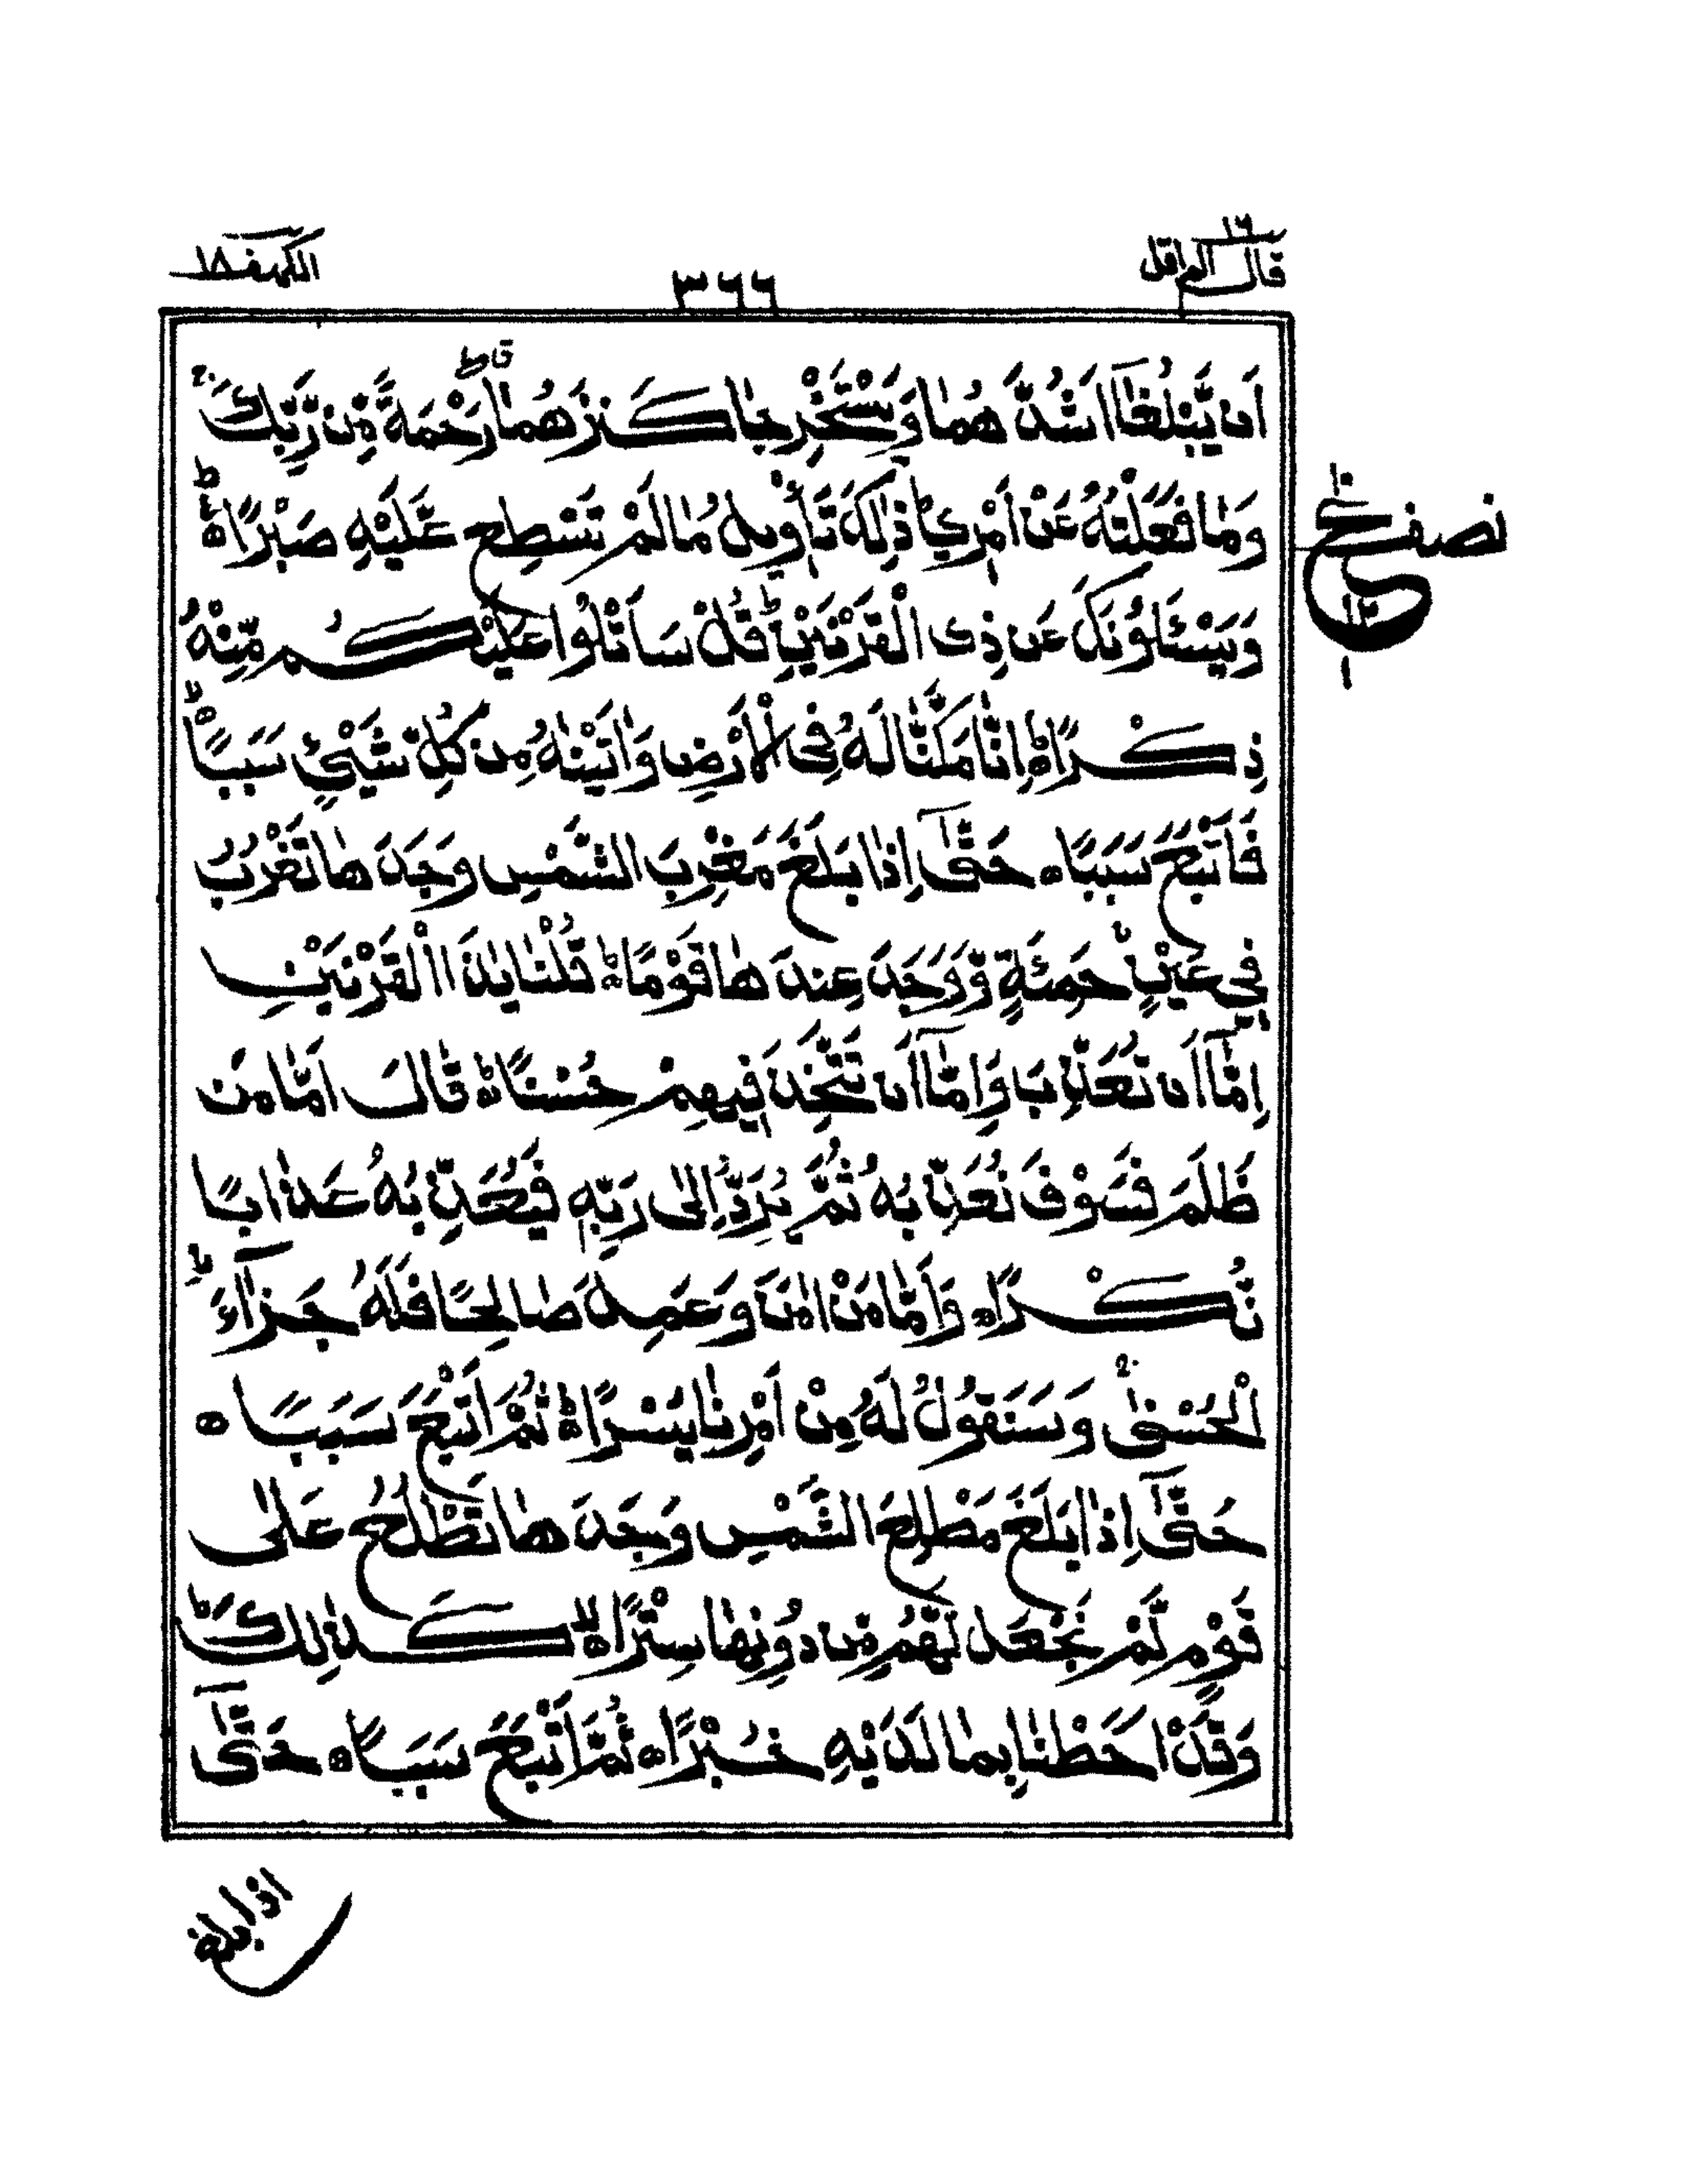 قال الم اقل ١٦
٣٦٦
الكهف ١٨
اَن يَّبْلُغَآ اَشُدَّ هُمَا وَيَسْتَخْرِ جَا كَنزَ هُمَا رَحْمَةً مِّن رَّبِّكَ
وَمَا فَعَلْتُهُ عَنْ اَمْرِي ذٰلِكَ تَأْوِيلُ مَا لَمْ تَسْطِع عَّلَيْهِ صَبْرًا ه
نصف
وَيَسْئَلُوْنَكَ عَن ذِى الْقَرْنَيْنِ ط قُلْ سَاَتْلُوْا عَلَيْكُم مِّنْهُ
ذِكْرًا ه اِنَّا مَكَّنَّا لَهُ فِى الْاَرْضِ وَاٰتَيْنٰهُ مِن كُلِّ شَيْئٍ سَبَبًا ه
فَاَتْبَعَ سَبَبًا ه حَتّٰىٓ اِذَا بَلَغَ مَغْرِبَ الشَّمْسِ وَجَدَ هَا تَغْرُبُ
فِي عَيْنٍ حَمِئَةٍ وَّوَجَدَ عِندَ هَا قَوْمًا ه قُلْنَا يٰذَا الْقَرْنَيْنِ
اِمَّآ اَن تُعَذِّبَ وَاِمَّآ اَن تَتَّخِذَ فِيهِمْ حُسْنًا ه قَالَ اَمَّا مَن
ظَلَمَ فَسَوْفَ نُعَذِّبُهُ ثُمَّ يُرَدُّ اِلٰى رَبِّهِ فَيُعَذِّبُهُ عَذَابًا
نُّكْرًا ه وَاَمَّا مَنْ اٰمَنَ وَعَمِلَ صَالِحًا فَلَهُ جَزَآءَ
الْحُسْنٰى وَسَنَقُوْلُ لَهُ مِنْ اَمْرِنَا يُسْرًا ه ثُمَّ اَتْبَعَ سَبَبًا ه
حَتّٰىٓ اِذَا بَلَغَ مَطْلِعَ الشَّمْسِ وَجَدَ هَا تَطْلُعُ عَلٰى
قَوْمٍ لَّمْ نَجْعَل لَّهُم مِّن دُوْنِهَا سِتْرًا ه كَذٰلِكَ ط
وَقَدْ اَحَطْنَا بِمَا لَدَيْهِ خُبْرًا ه ثُمَّ اَتْبَعَ سَبَبًا ه حَتّٰىٓ
اذا بلغ